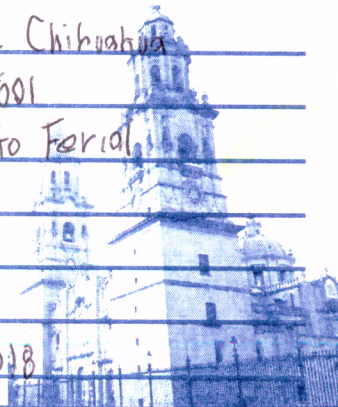 Chihuahua
601
to Ferial
018